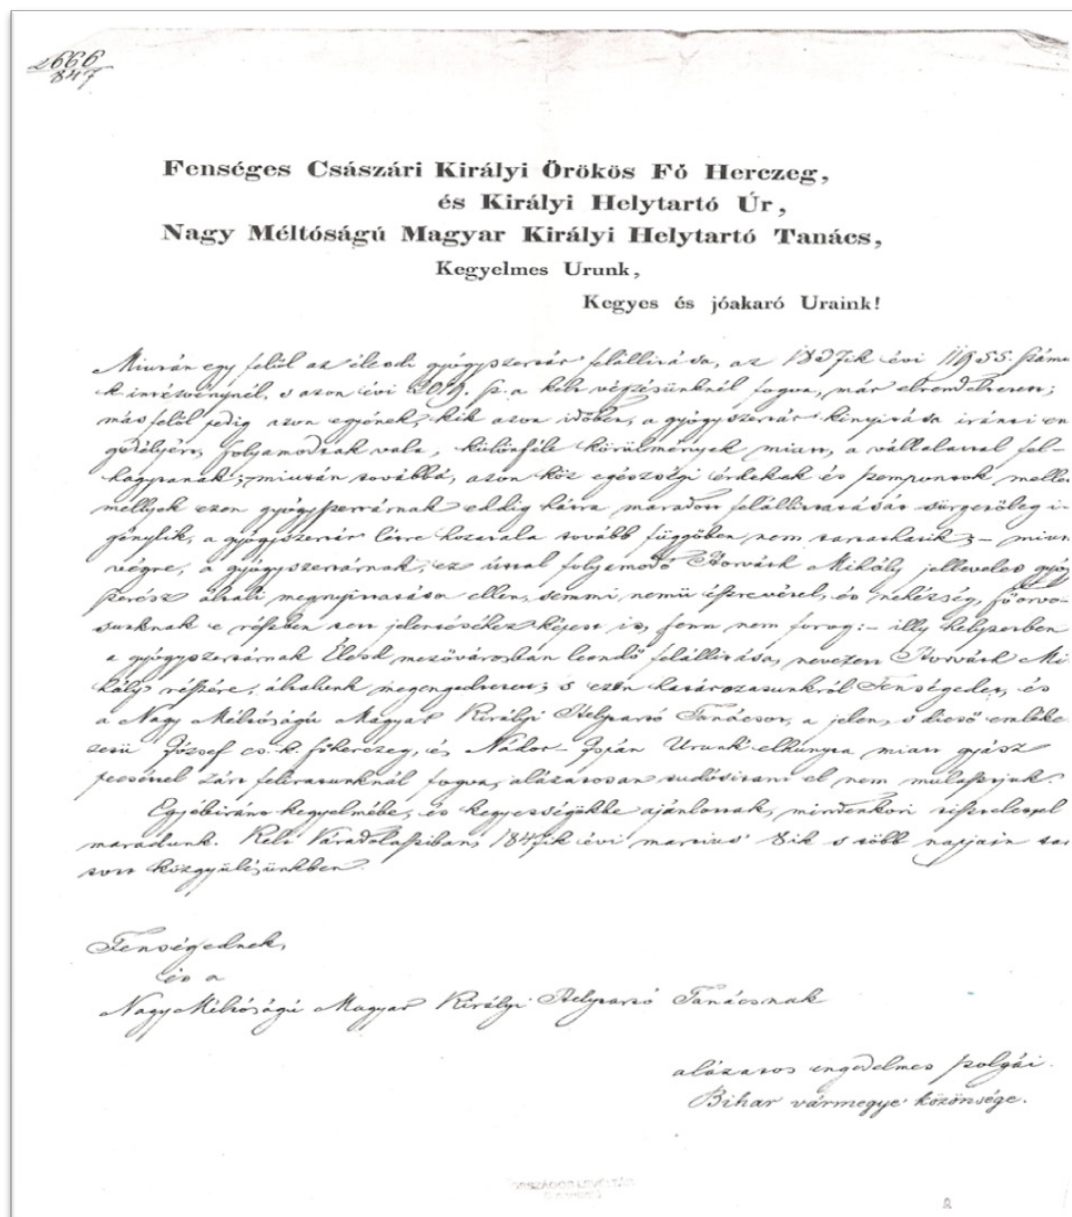 2666
847
Fenséges Császári Királyi Örökös Fő Herczeg,
és Királyi Helytartó Úr,
Nagy Méltóságú Magyar Királyi Helytartó Tanács,
Kegyelmes Urunk,
Kegyes és jóakaró Uraink!
Miután egy felül az élesdi gyógyszertár felállitása, az 1837ik évi 11955. számu
k. intézvénynél, s azon évi 2019. sz. a. kelt végzésünknél fogva, már elrendeltetett;
más felöl pedig azon egyének, kik azon időben, a gyógyszertár kinyitása iránti en
gedélyért, folyamodtak vala, különféle körülmények miatt, a vállalattal fel-
hagytanak; miután továbbá, azon köz egészségi érdekek és szempontok melle
mellyek ezen gyógyszertárnak eddig hátra maradott felállittatását sürgetőleg i-
génylik, a gyógyszertár létre hozatala tovább függőben nem tartathatik; – miut
végre, a gyógyszertárnak, ez úttal folyamodó Horváth Mihály jelleveles gyógy
szerész általi megnyittatása ellen, semmi nemü észrevétel, és nehézség, főorvo-
sunknak e részben tett jelentéséhez képest is, fenn nem forog: – illy helyzetben
a gyógyszertárnak Élesd mezővárosban leendő felállitása, nevezett Horváth Mi
hály részére, általunk megengedtetett; s ezen határozatunkról Fenségedet, és
a Nagy Méltóságú Magyar Királyi Helytartó Tanácsot, a jelen, s dicső emléke
zetü József cs. k. főherczeg, és Nádor-Ispán Urunk elhúnyta miatt gyász
pecséttel zárt feliratunknál fogva, alázatosan tudósitani el nem mulasztjuk.
Egyébiránt kegyelmébe, és kegyességökbe ajánlottak, mindenkori tisztelettel
maradunk. Kelt Váradolasziban, 1847ik évi martius' 8ik s több napjain tar
tott közgyülésünkben.
Fenségednek,
és a
Nagy Méltóságú Magyar Királyi Helytartó Tanácsnak
alázatos engedelmes szolgái.
Bihar vármegye' közönsége.